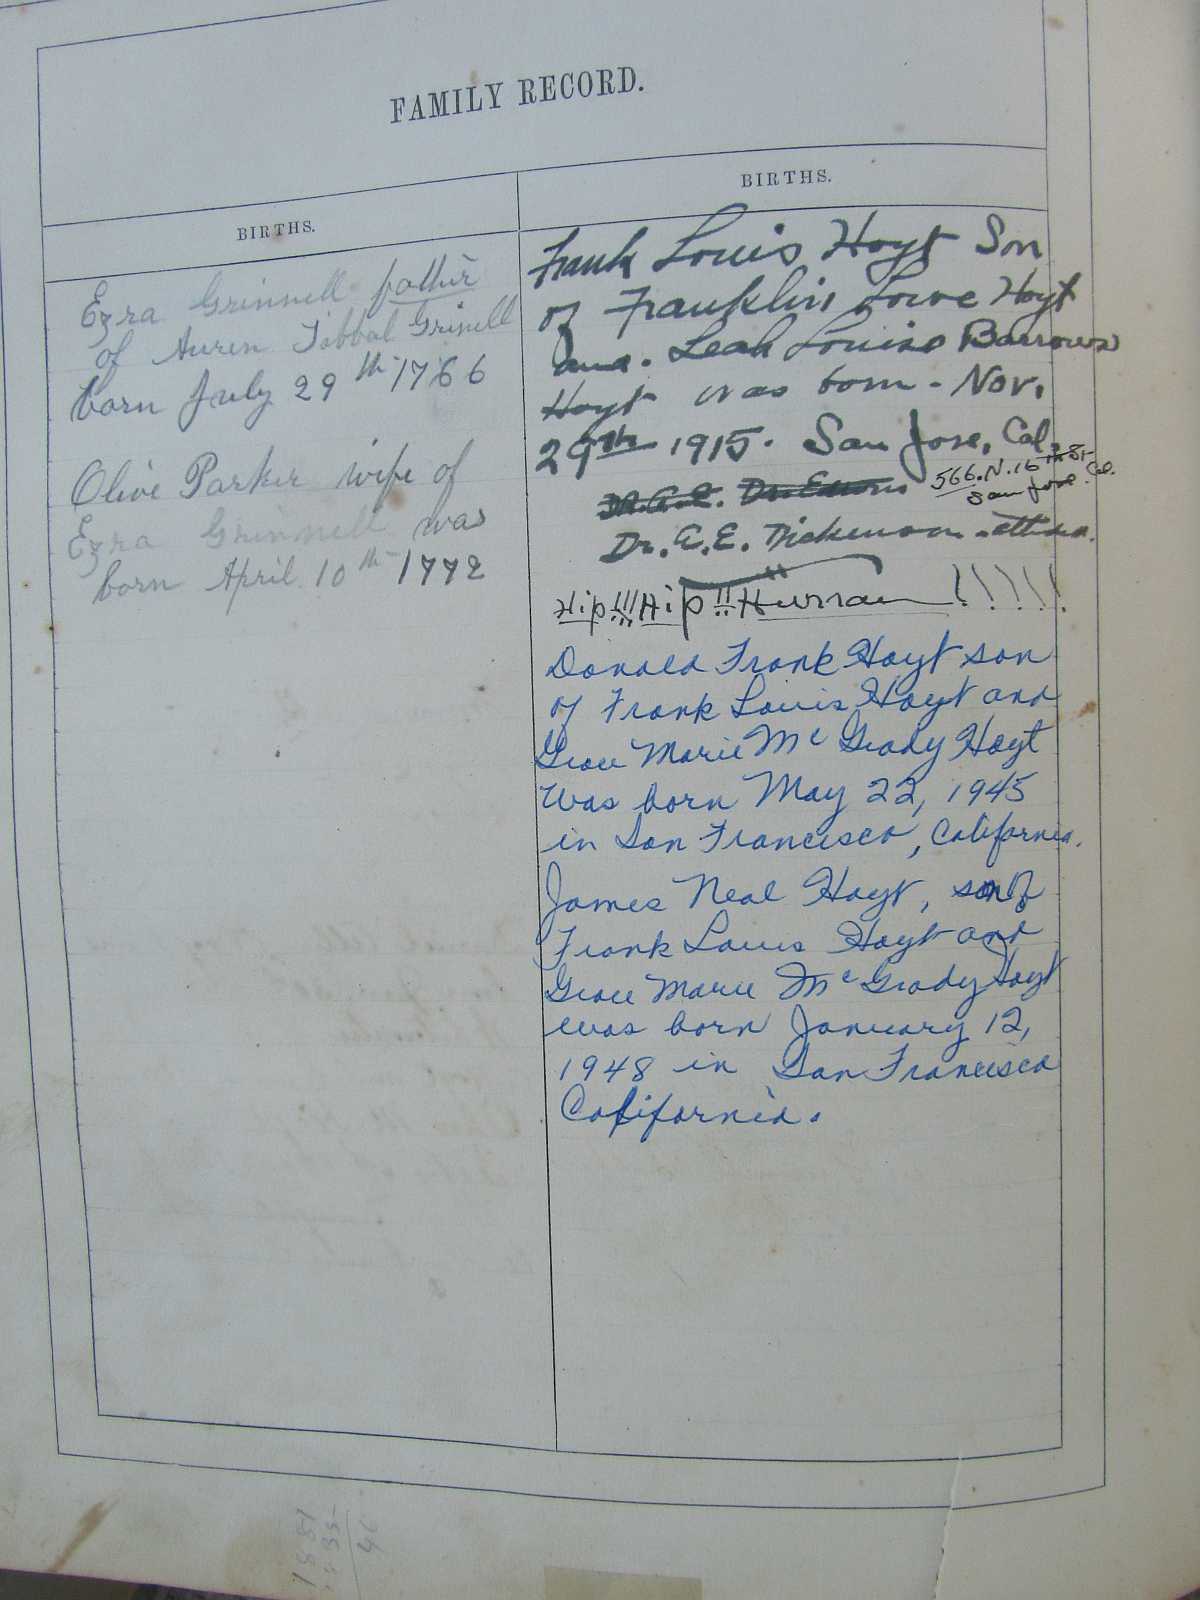 FAMILY RECORD.
BIRTHS.
Ezra Grinnell father
of Auren Tobbal Grinell
born July 29th 1766
Olive Parker wife of
Ezra Grinnell was
born April 10th 1772
BIRTHS.
Frank Louis Hoyt Son
of Franklin Lowe Hoyt
and. Leah Louise Barrows
Hoyt was born - Nov.
29th 1915. San Jose, Cal.
566.N.16th St
San Jose. Cal.
Dr. A. E.
Dr. A. E. Dickenson
Hip!!! Hip!! Hurrah !!!!!
Donald Frank Hoyt son
of Frank Louis Hoyt and
Grace Marie Mc Grady Hoyt
was born May 22, 1945
in San Francisco, California.
James Neal Hoyt, son of
Frank Louis Hoyt and
Grace Marie Mc Grady Hoyt
was born January 12,
1948 in San Francisco
California.
1881